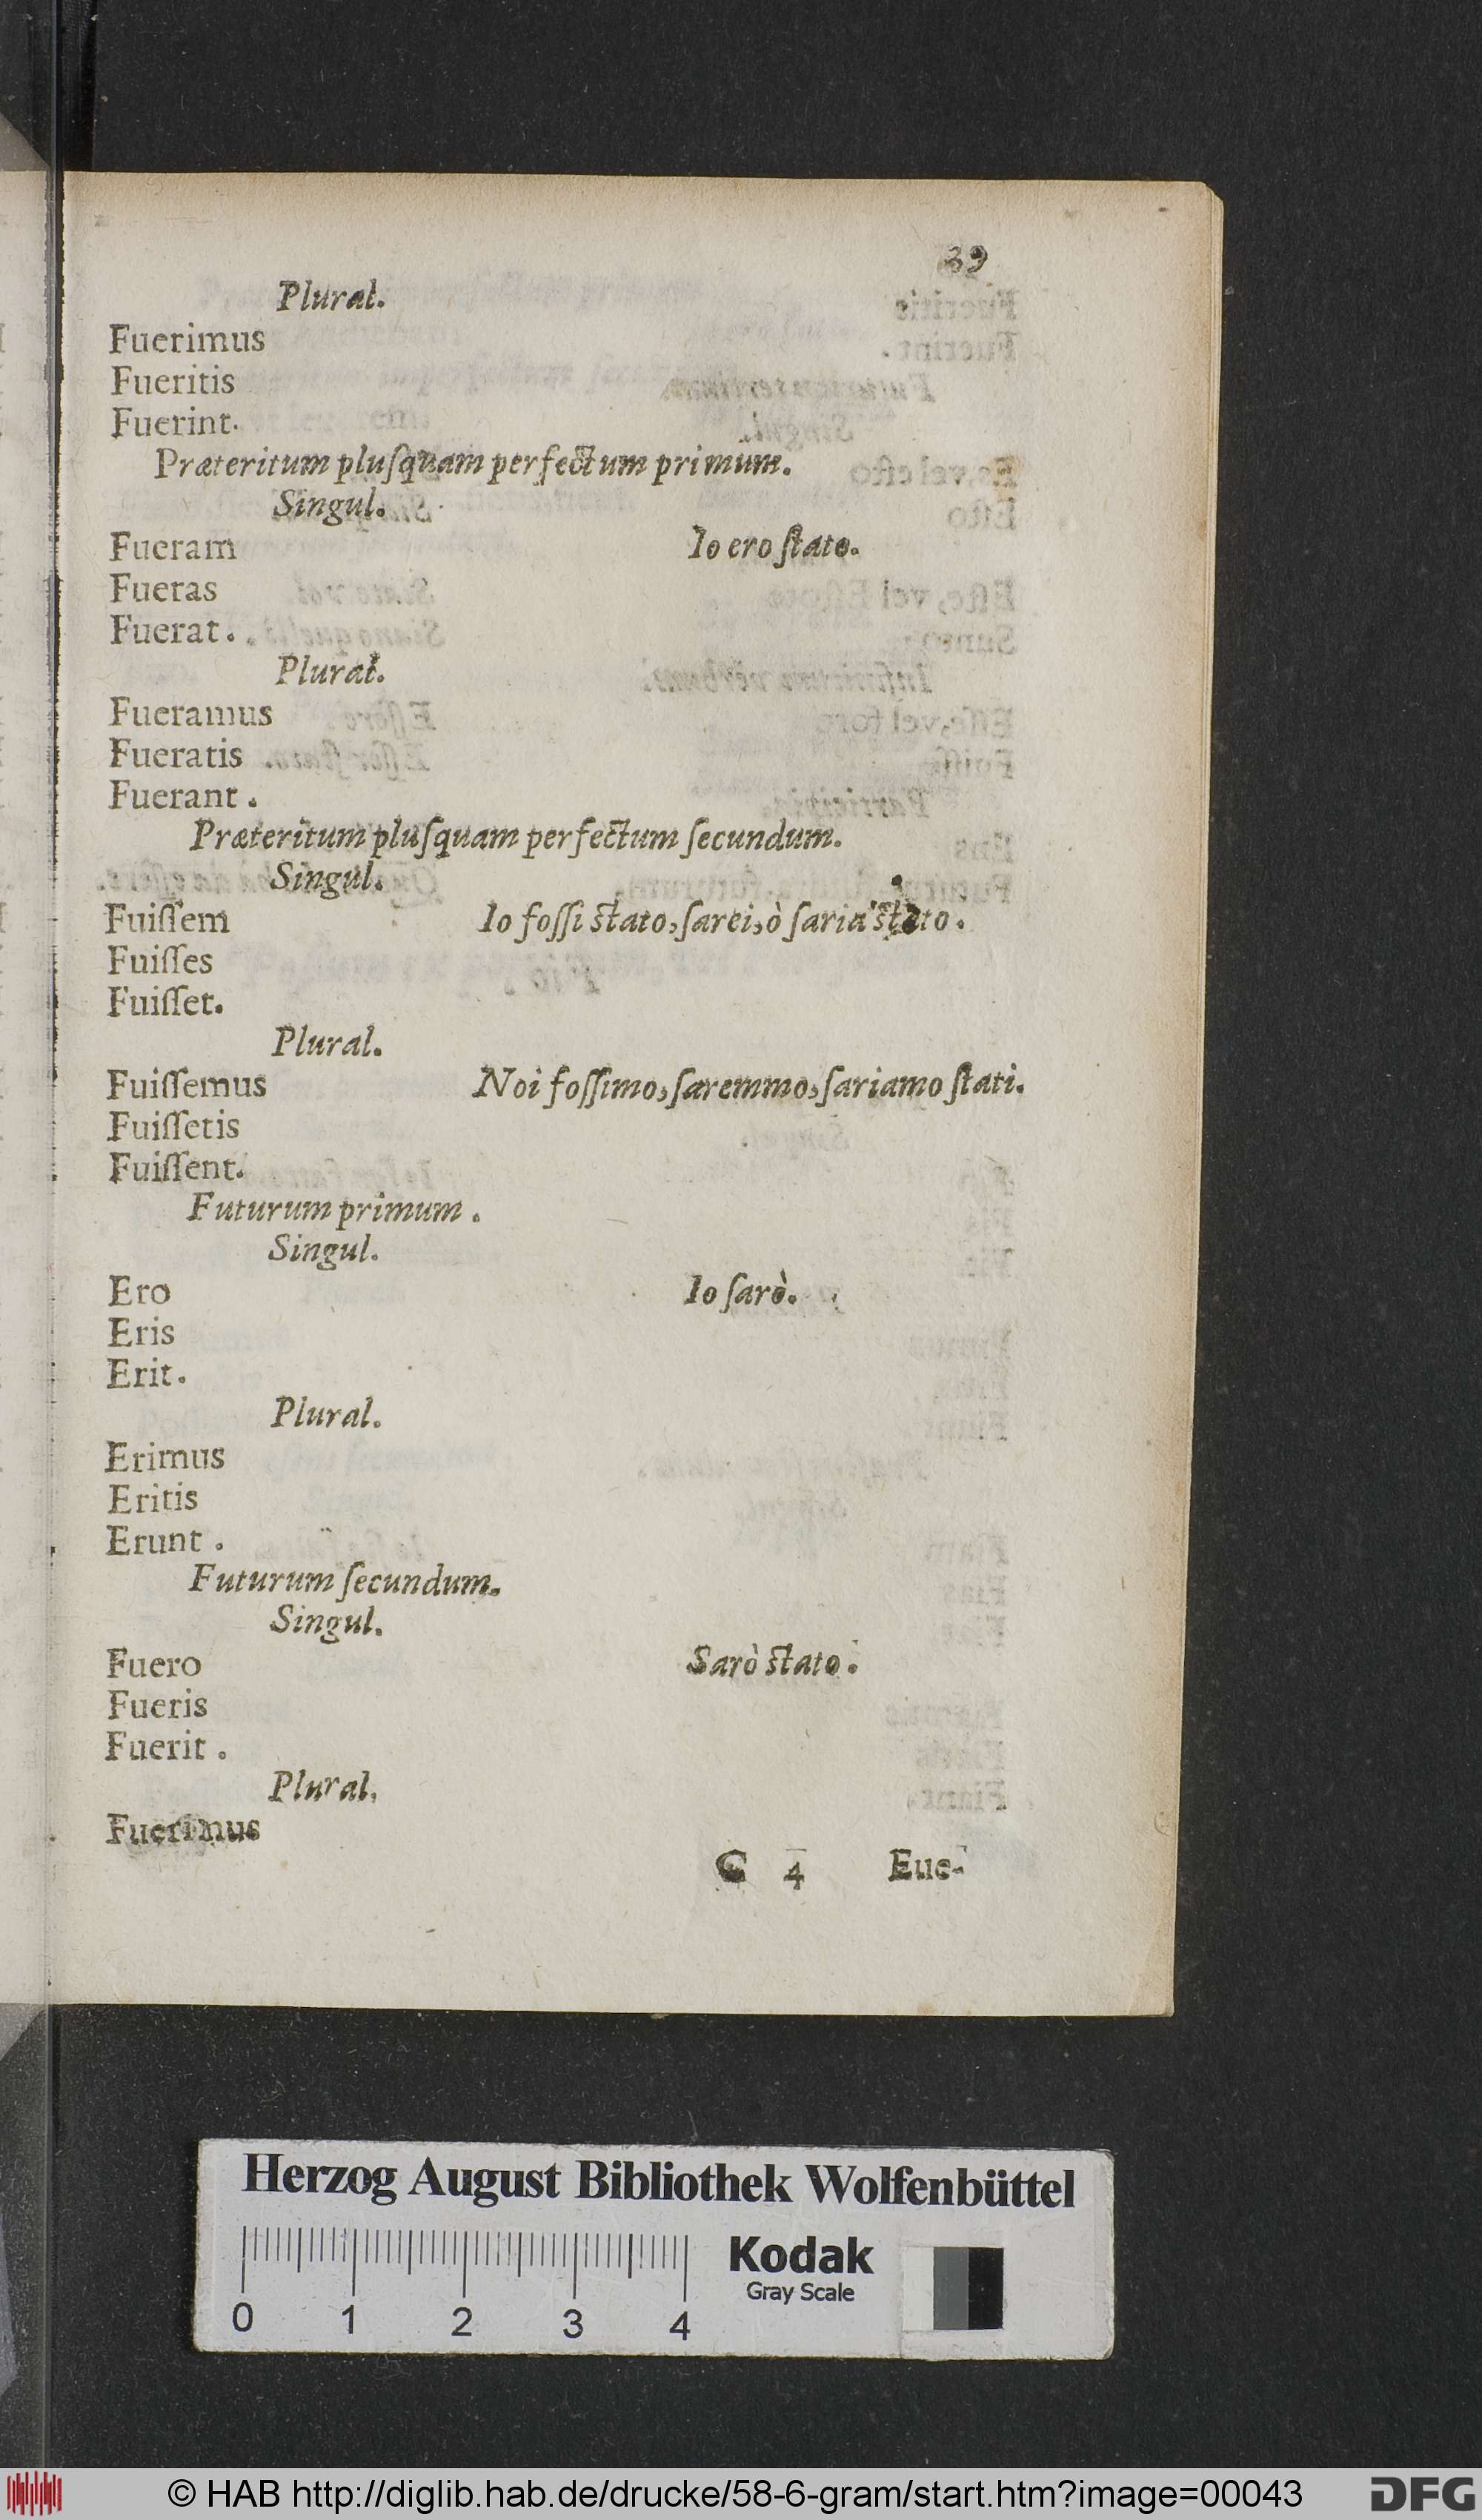 39
Plural.
Fuerimus
Fueritis
Fuerint.
Præteritum pluſquam perfectum primum.
Singul.
Fueram Io ero ſtato.
Fueras
Fuerat.
Plural.
Fueramus
Fueratis
Fuerant.
Præteritum pluſquam perfectum ſecundum.
Singul.
Fuiſſem Io foſſi ſtato, ſarei, ò ſaria ſtato.
Fuiſſes
Fuiſſet.
Plural.
Fuiſſemus Noi foſſimo, ſaremmo, ſariamo ſtati.
Fuiſſetis
Fuiſſent.
Futurum primum.
Singul.
Ero Io ſarò.
Eris
Erit.
Plural.
Erimus
Eritis
Erunt.
Futurum ſecundum.
Singul.
Fuero Sarò ſtato.
Fueris
Fuerit.
Plural.
Fuerimus
C 4 Fue-
Herzog August Bibliothek Wolfenbüttel
Kodak
Gray Scale
0 1 2 3 4
© HAB http://diglib.hab.de/drucke/58-6-gram/start.htm?image=00043
DFG